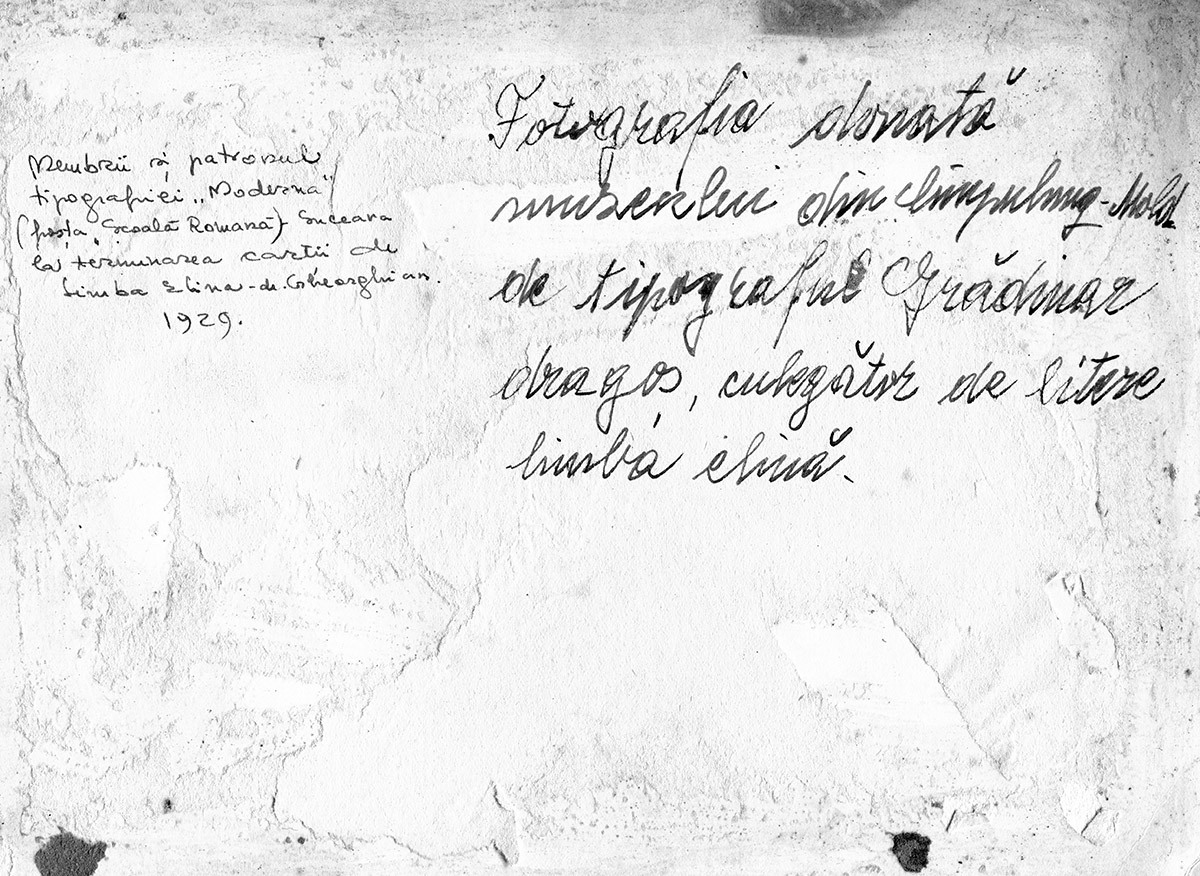 Membrii și patronul
tipografiei „Moderna”
(fosta „Școală Romană”) - Suceava
la terminarea cartii de
Limba Elina - de Gheorghian.
1929.
Fotografia donată
muzeului din Cîmpulung-Mold
de tipograful Grădinar
dragoș, culegător de litere
limba elină.